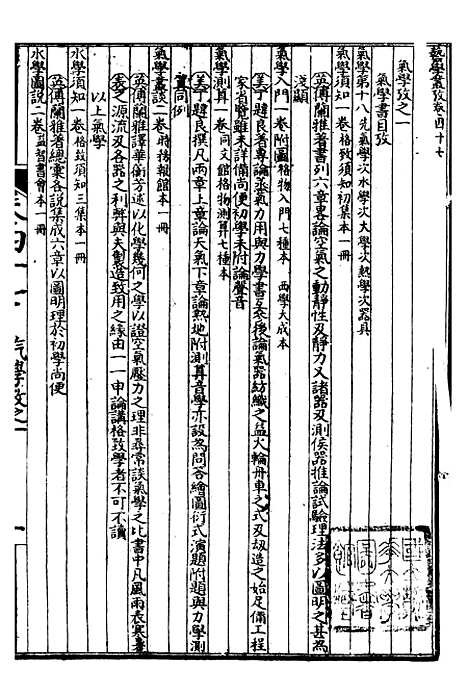 藝學彙攷卷四十七
氣學攷之一
氣學書目攷
氣學第十八先氣學次水學次火學次熱學次器具
氣學須知一卷格致須知初集本一冊
英傅蘭雅著書列六章畧論空氣之動靜性及靜力又諸器及測候器推論試驗理法多以圖明之甚為
淺顯
氣學入門一卷附圖格物入門七種本 西學大成本
美丁韙良著專論蒸氣力用與力學書互參後論氣器紡織之益火輪舟車之式及刱造之始足備工程
家省覽雖未詳備尚便初學末附論聲音
氣學測算一卷同文館格物測算七種本
美丁韙良撰凡兩章上章論天氣下章論熱地附測算音學亦設為問答繪圖衍式演題附題與力學測
算同例
氣學叢談二卷時務報館本一冊
英傅蘭雅譯華衡芳述以化學幾何之學以證空氣壓力之理非尋常談氣學之比書中凡風雨表寒暑
表之源流及各器之利弊與夫製造致用之緣由一一申論講格致學者不可不讀
以上氣學
水學須知一卷格致須知三集本一冊
水學圖說二卷益智書會本一冊
英傅蘭雅著總彙各說集成六章以圖明理於初學尚便
氣學攷之一